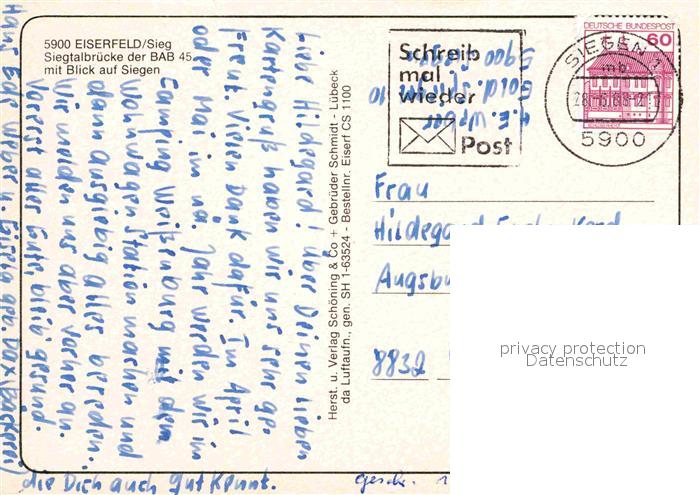 5900 EISERFELD/Sieg
Siegtalbrücke der BAB 45
mit Blick auf Siegen
Liebe Hildegard! Über Deinen lieben
Kartengruß haben wir uns sehr ge-
freut. Vielen Dank dafür. Im April
oder Mai im nä. Jahr werden wir im
Camping Weißenburg mit dem
Wohnwagen Station machen und
dann ausgiebig alles bereden.
Wir melden uns aber vorher an.
Vorerst alles Gute, bleib gesund.
Hans Eder Weber u. Gisela geb. Dax (Bäckerei)
die Dich auch gut kennt.
Herst. u. Verlag Schöning & Co + Gebrüder Schmidt - Lübeck
da Luftaufn., gen. SH 1-63524 - Bestellnr. Eiserf CS 1100
H.E. Weber
10
5900
Schreib
mal
wieder
Post
DEUTSCHE BUNDESPOST
60
SIEGEN 1
mb
5900
Frau
Hildegard
Augsbu
8832
gesch.
privacy protection
Datenschutz